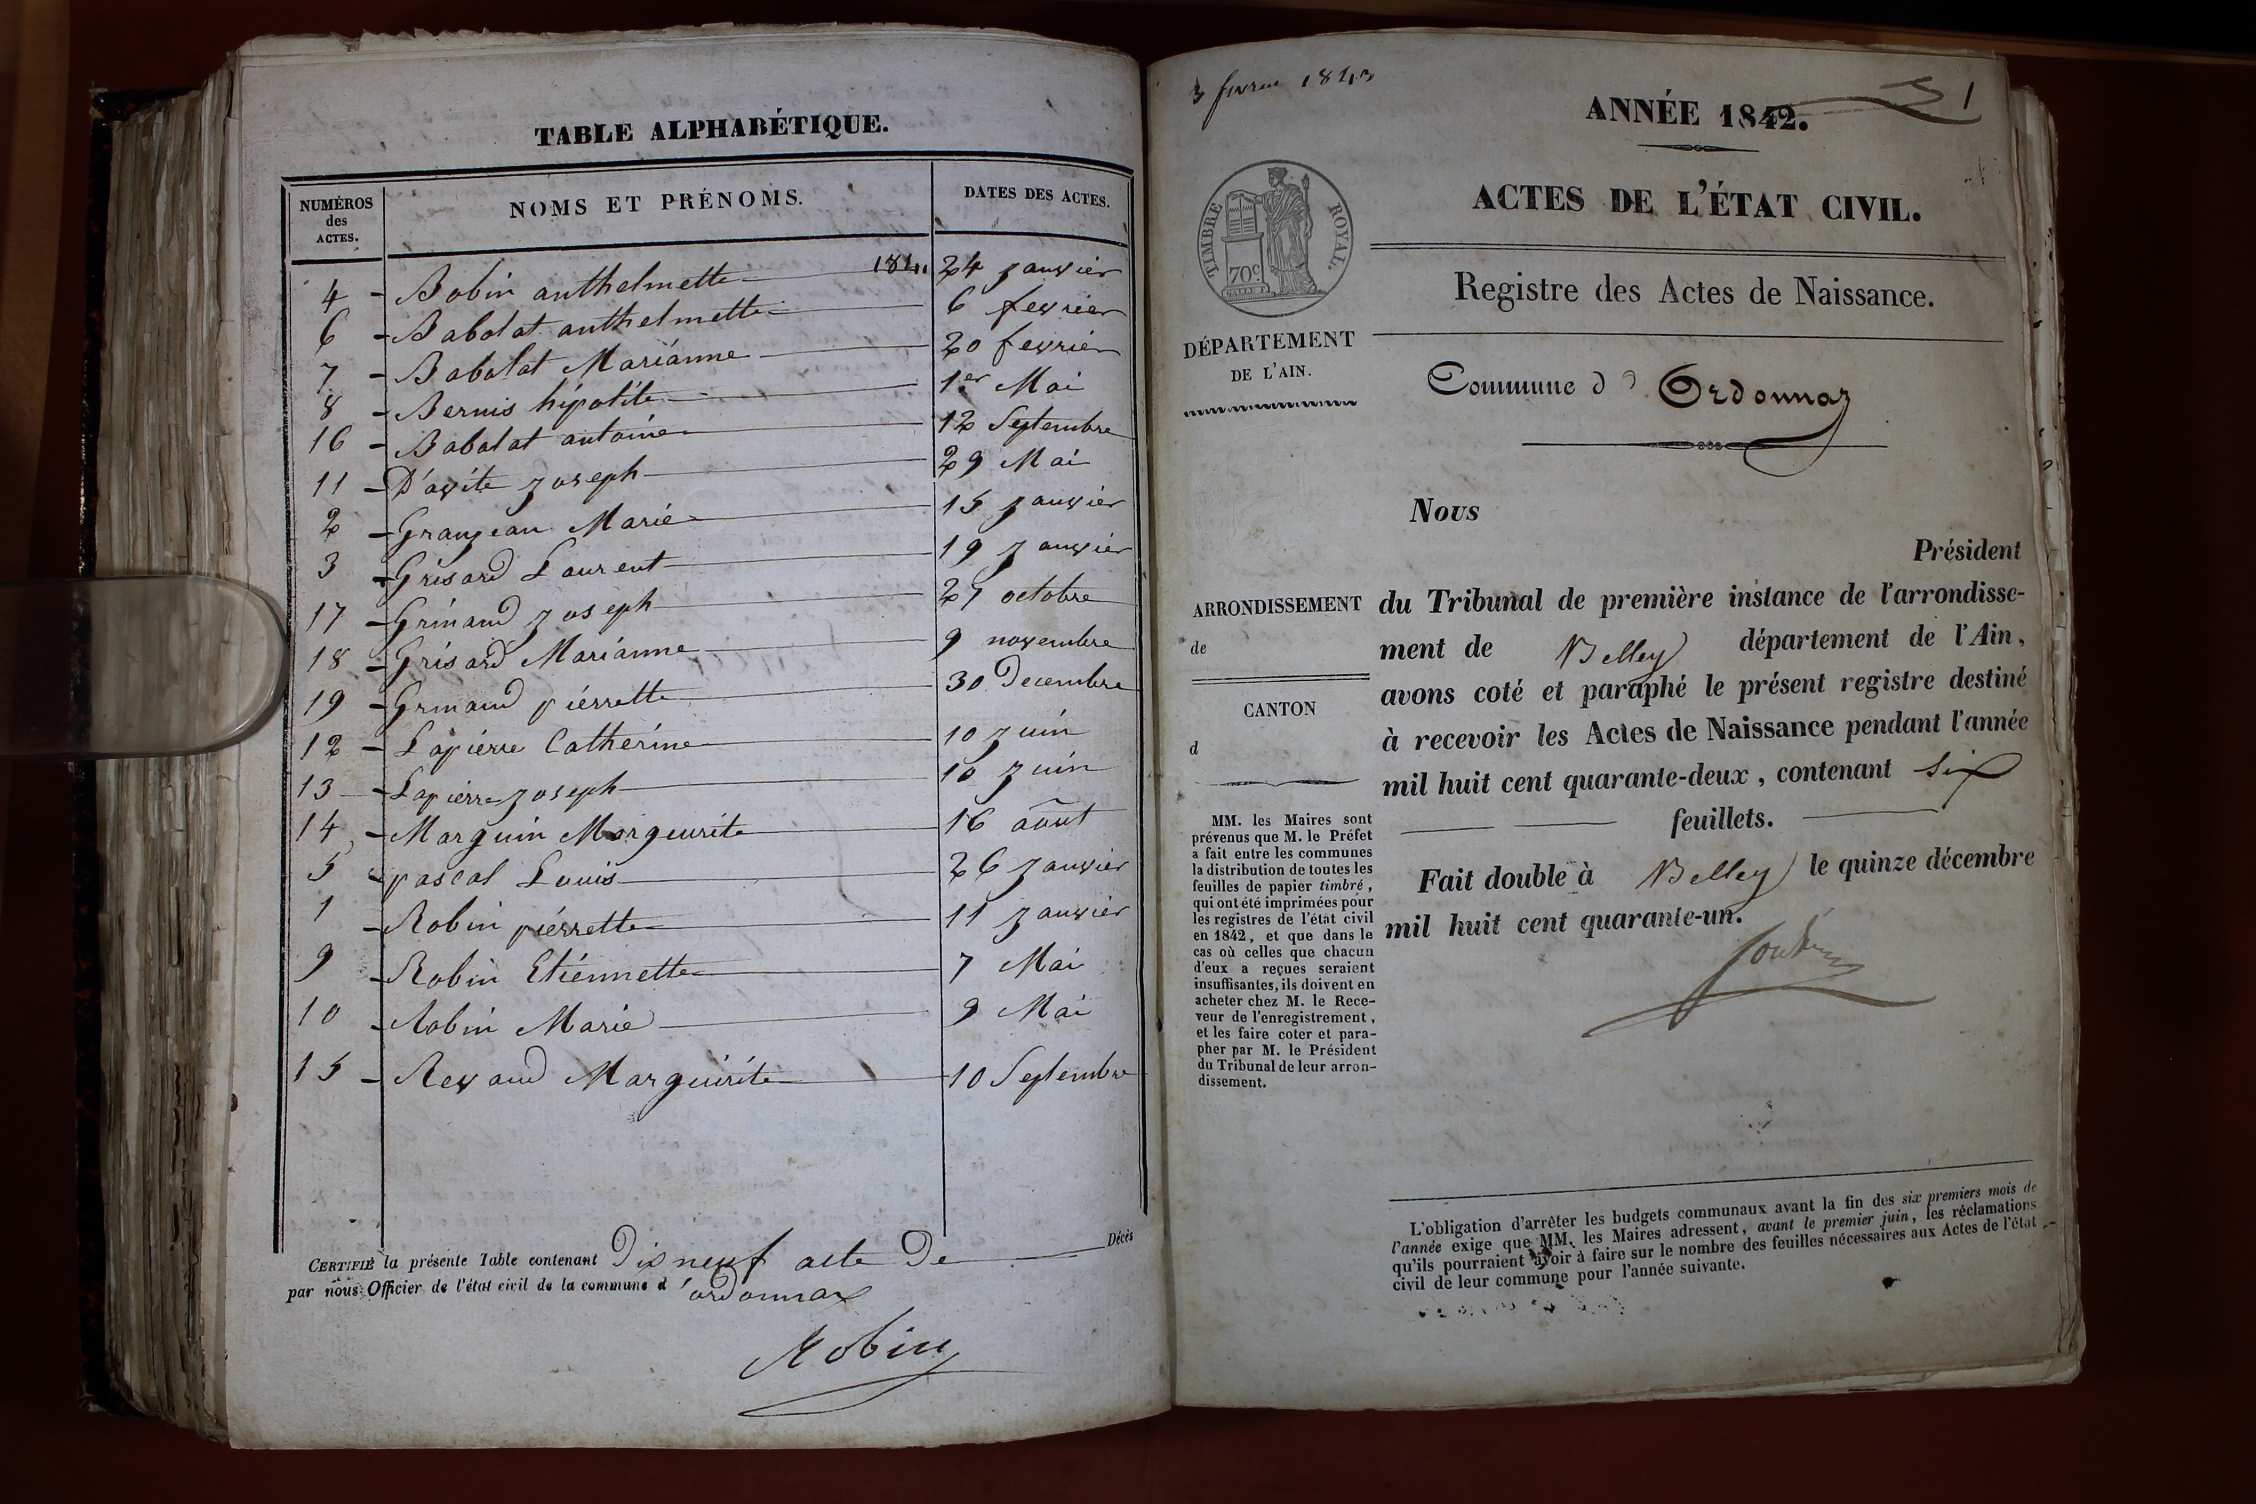 TABLE ALPHABÉTIQUE.
NUMÉROS des ACTES.
NOMS ET PRÉNOMS.
DATES DES ACTES.
4 - Bobin anthelmette 1841 24 janvier
6 - Babolat anthelmette 6 fevrier
7 - Babolat Marianne 20 fevrier
8 - Bernis hipolite 1er Mai
16 - Babolat antoine 12 Septembre
11 - D'avite joseph 29 Mai
2 - Granjean Marie 15 janvier
3 - Grisard Laurent 19 janvier
17 - Grinand joseph 27 octobre
18 - Grisard Marianne 9 novembre
19 - Grinand pierrette 30 Decembre
12 - Lapierre Catherine 10 juin
13 - Lapierre joseph 10 juin
14 - Marguin Margeurite 16 août
5 - pascal Louis 26 janvier
1 - Robin pierrette 11 janvier
9 - Robin Etiennette 7 Mai
10 - Robin Marie 9 Mai
15 - Reyaud Marguirite 10 Septembre
CERTIFIÉ la présente Table contenant Dix neuf acte De Décès
par nous Officier de l'état civil de la commune d'ordonnax
Robin
3 fevrier 1843
1
ANNÉE 1842.
ACTES DE L'ÉTAT CIVIL.
TIMBRE ROYAL.
70c
Registre des Actes de Naissance.
DÉPARTEMENT
DE L'AIN.
Commune d' Ordonnaz
Nous
Président
ARRONDISSEMENT
de
CANTON
d
du Tribunal de première instance de l'arrondisse-
ment de Belley département de l'Ain,
avons coté et paraphé le présent registre destiné
à recevoir les Actes de Naissance pendant l'année
mil huit cent quarante-deux, contenant six
feuillets.
Fait double à Belley le quinze décembre
mil huit cent quarante-un.
MM. les Maires sont
prévenus que M. le Préfet
a fait entre les communes
la distribution de toutes les
feuilles de papier timbré,
qui ont été imprimées pour
les registres de l'état civil
en 1842, et que dans le
cas où celles que chacun
d'eux a reçues seraient
insuffisantes, ils doivent en
acheter chez M. le Rece-
veur de l'enregistrement,
et les faire coter et para-
pher par M. le Président
du Tribunal de leur arron-
dissement.
L'obligation d'arrêter les budgets communaux avant la fin des six premiers mois de
l'année exige que MM. les Maires adressent, avant le premier juin, les réclamations
qu'ils pourraient avoir à faire sur le nombre des feuilles nécessaires aux Actes de l'état
civil de leur commune pour l'année suivante.